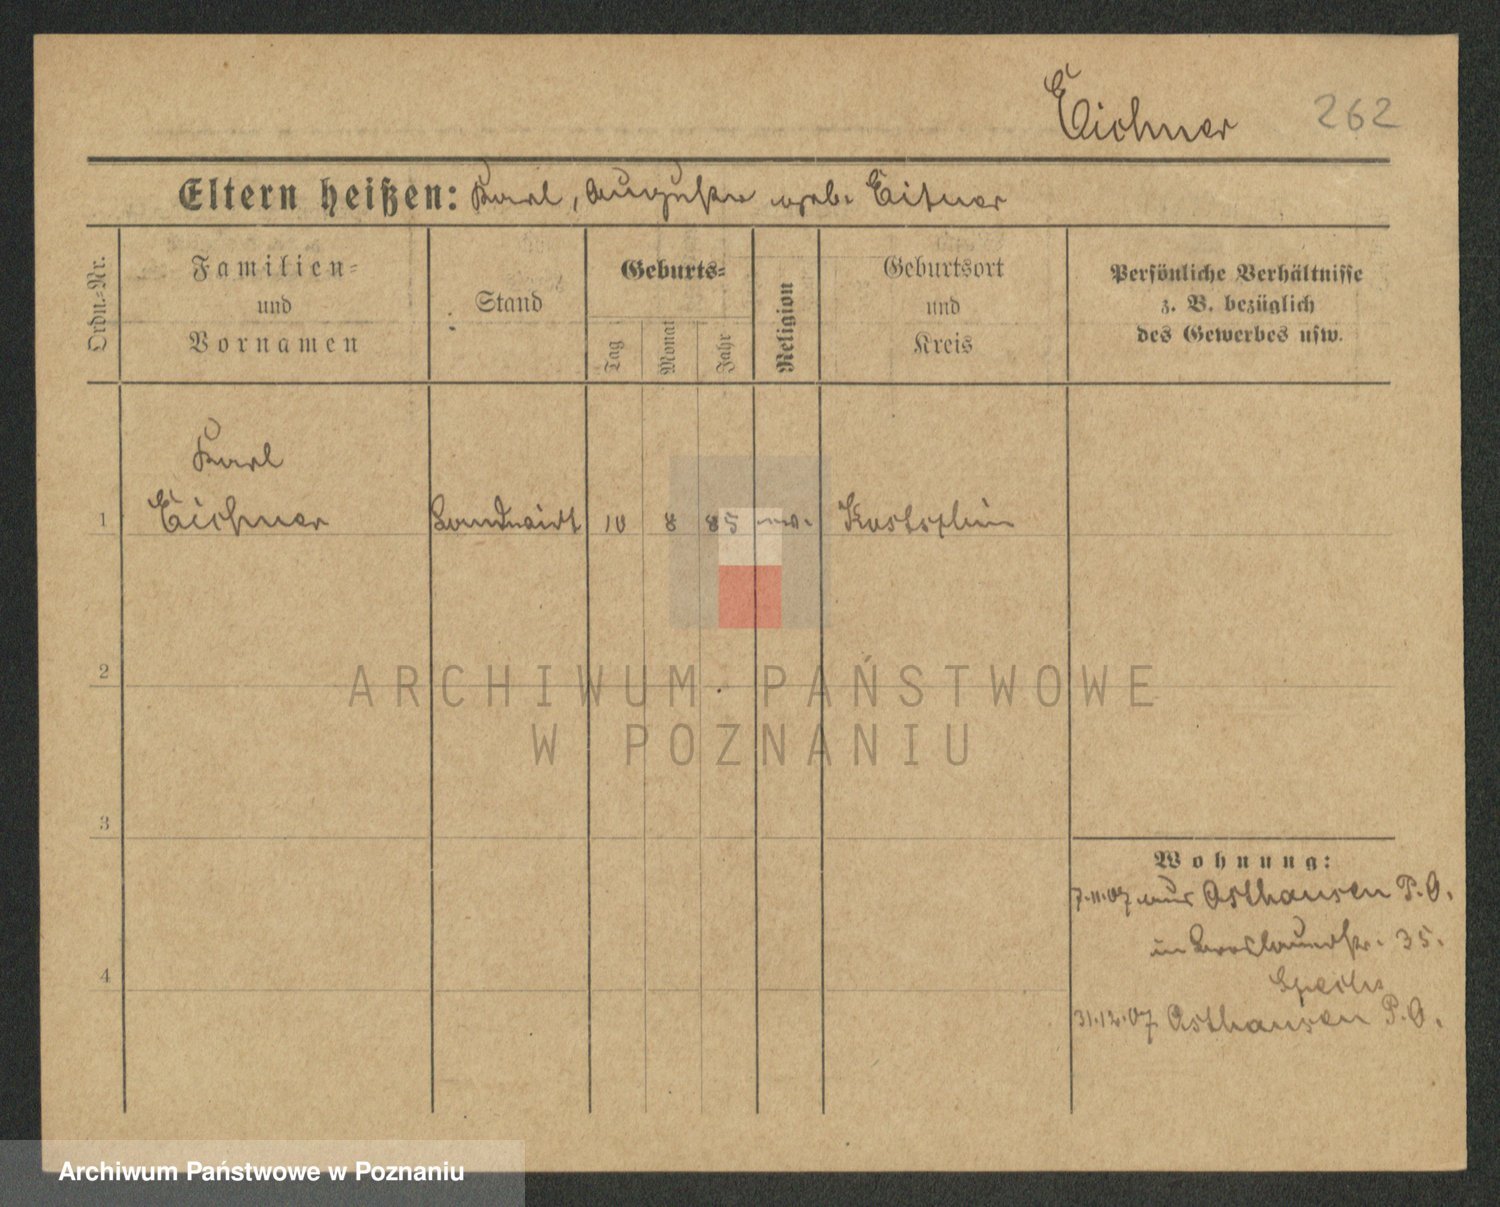 Eichner 262
Eltern heißen: Karl, Auguste geb. Eitner
Ordn.-Nr.
Familien-
und
Vornamen
Stand
Geburts-
Tag
Monat
Jahr
Religion
Geburtsort
und
Kreis
Persönliche Verhältnisse
z. B. bezüglich
des Gewerbes usw.
Karl
1 Eichner Landwirt 10 8 85 ev.
2
3
4
Wohnung:
7.11.07 aus Osthausen P.O.
in 35.
31.12.07 Osthausen P.O.
ARCHIWUM PAŃSTWOWE
W POZNANIU
Archiwum Państwowe w Poznaniu